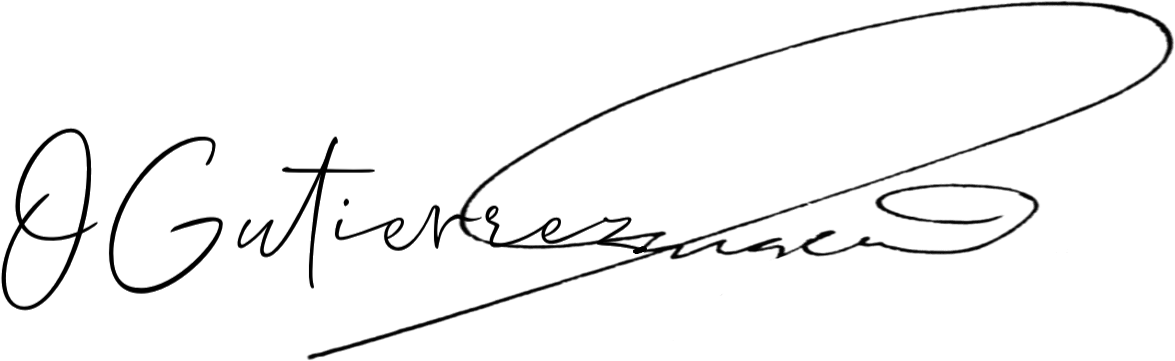 O Gutierrez